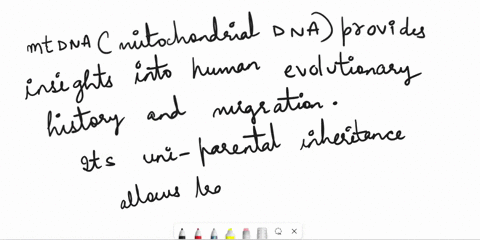 mtDNA (mitochondrial DNA) provides
insights into human evolutionary
history and migration.
Its uni-parental inheritance
allows